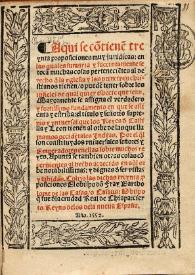 ¶ Aqui se cõtienẽ tre
ynta proposiciones muy juridicas: en
las quales sumaria y succintamente se
toca muchas cosas pertenecientes al de
recho q̃ la yglesia y los principes chri
stianos tienen / o puedẽ tener sobre los
infieles de qual quier especie que sean.
Mayormente se assigna el verdadero
y fortissimo fundamento en que se assi
enta y estriba: el titulo y señorio supre
mo y universal que los Reyes de Casti
lla y Leon tienen al orbe de lo que lla
mamos occidẽtales Indias. Por el ql
son constituydos universales señores y
Emperadores en ellas sobre muchos re
yes. Apunta se tambien otras cosas cõ
cernientes al hecho acaecido en aql or
be notabilissimas: y dignas d̃ ser vistas
y sabidas. Coligio las dichas treynta
proposiciones El obispo dõ Fray Bartho
lome de las Casas / o Casaus: Obispo
q̃ fue d̃ la ciudad Real de Chiapa: cier
to Reyno de los de la nueva España.
Año. 1552.